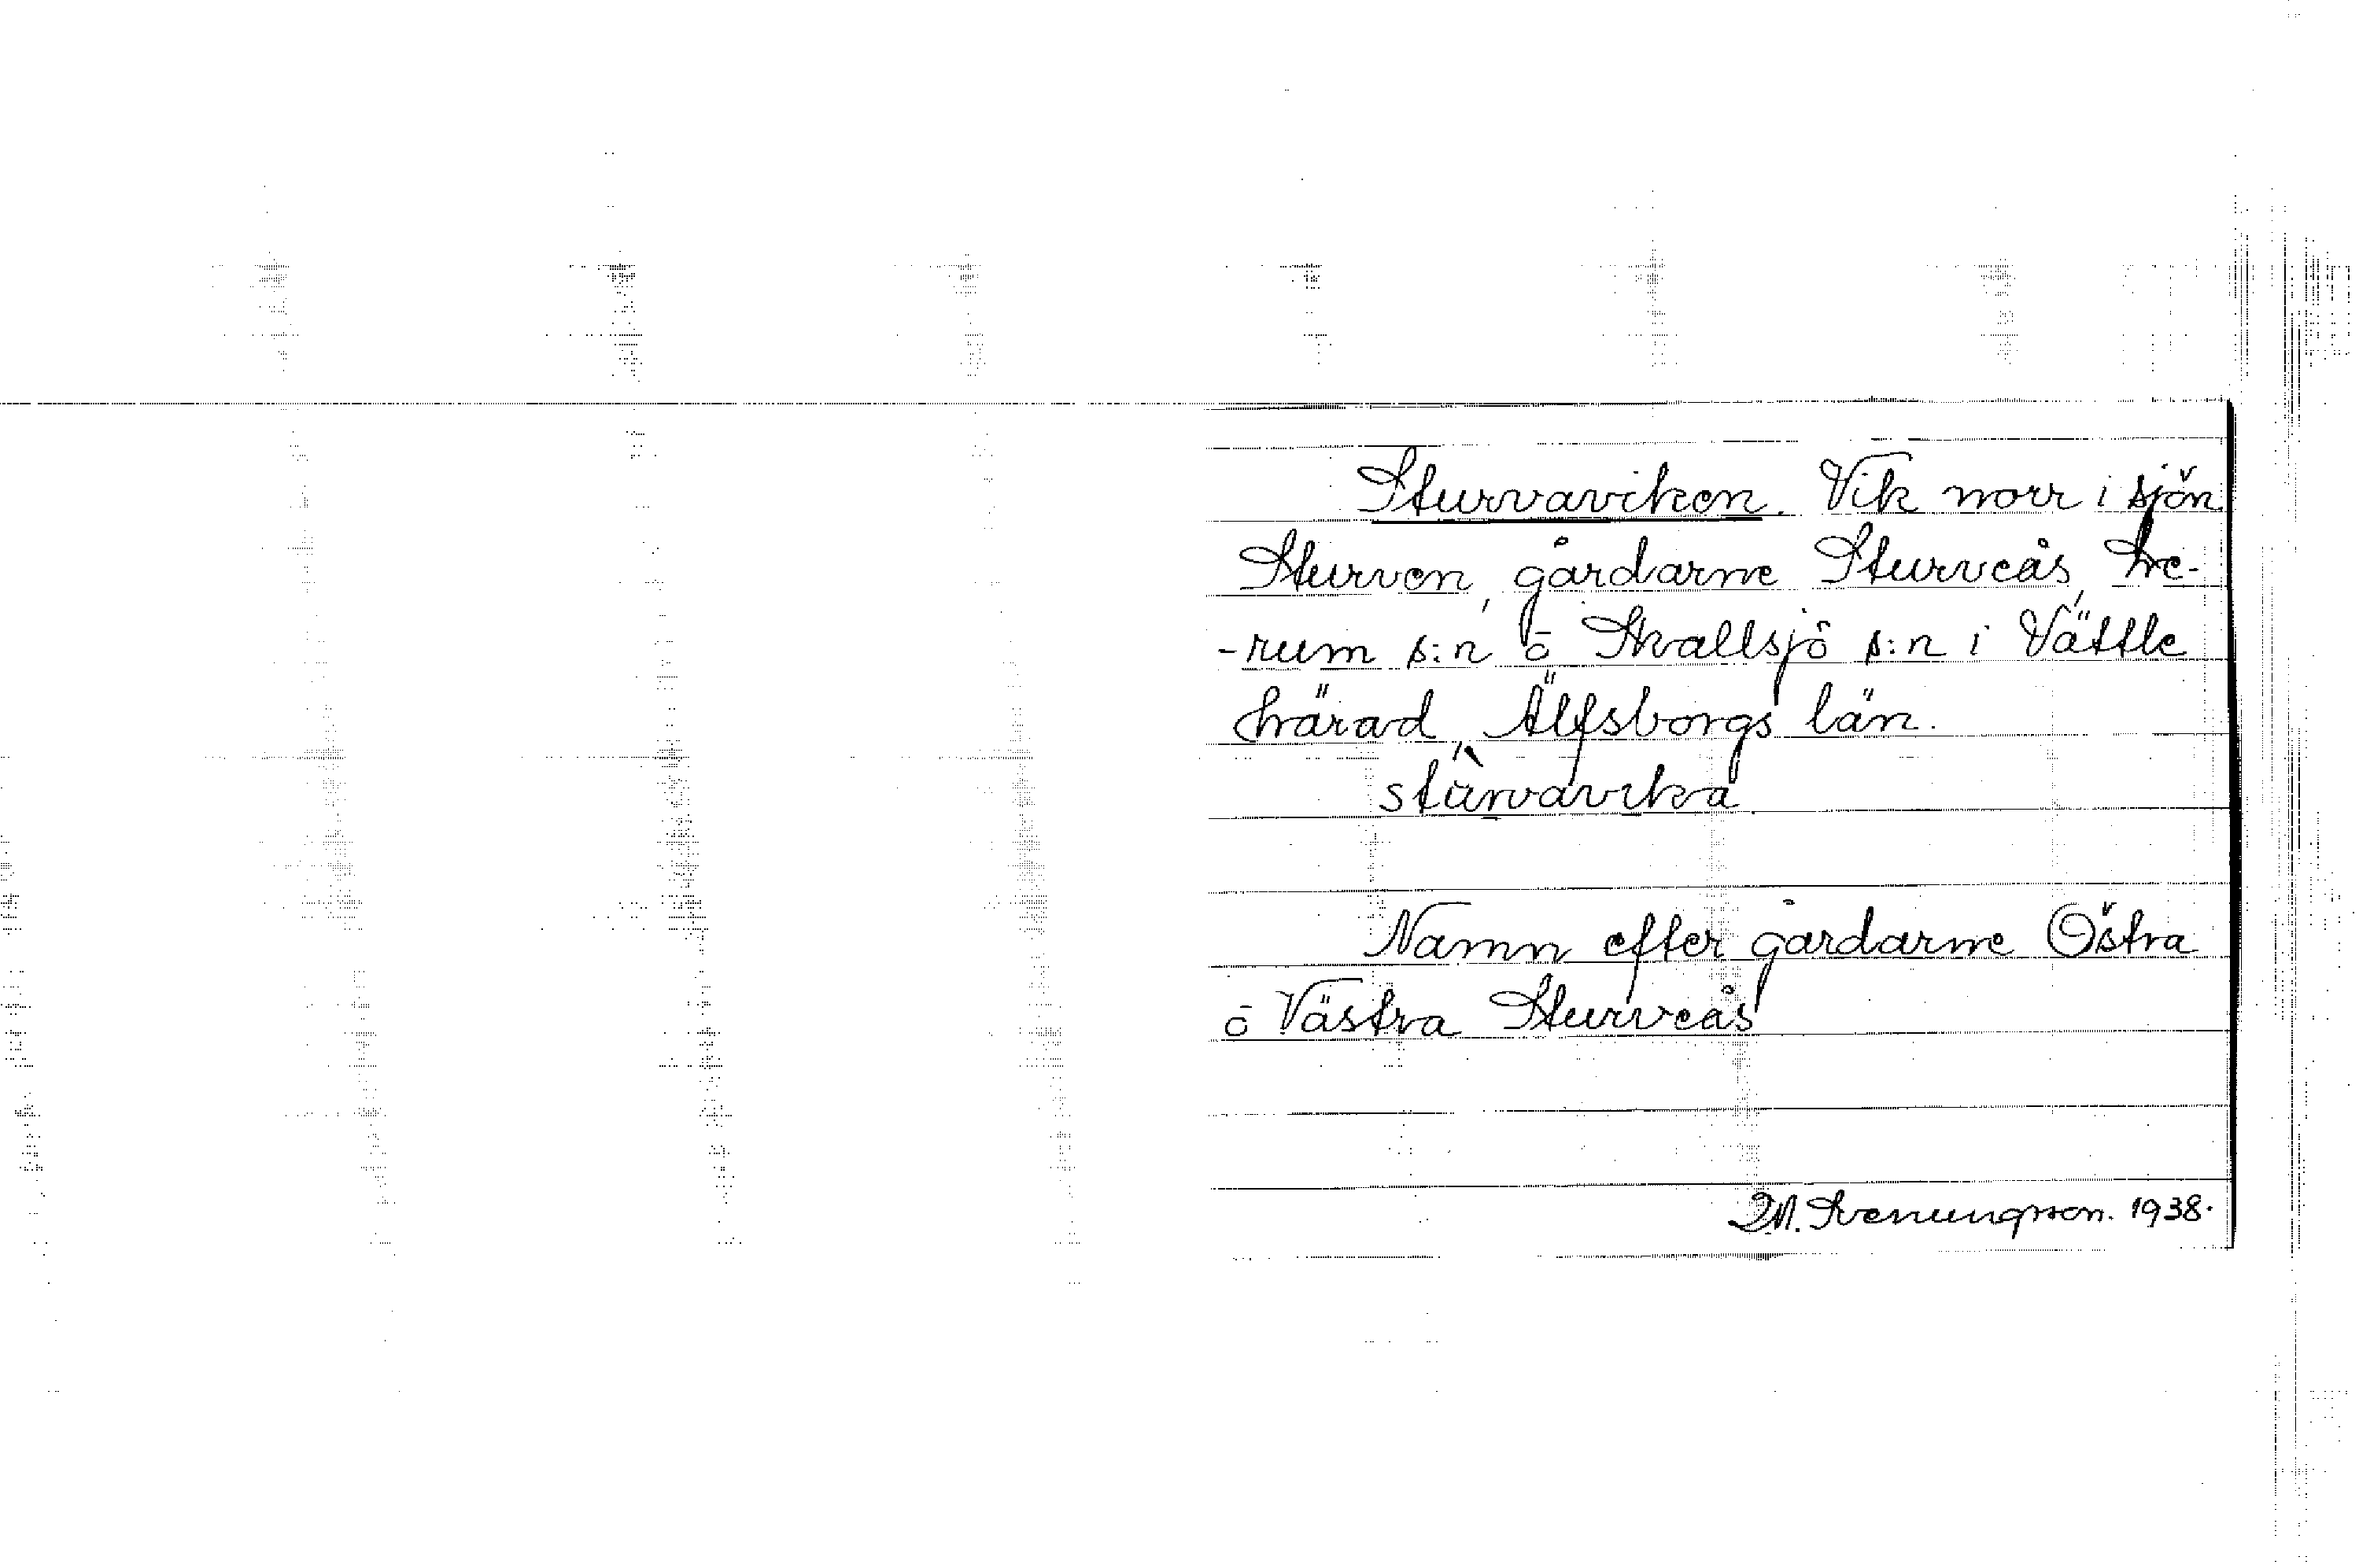 Sturvaviken. Vik norr i sjön
Sturven, gårdarne Sturveås, Le-
-rum s:n ō Skallsjö s:n i Vättle
härad, Älfsborgs län.
stùrvavika
Namn efter gårdarne Östra
ō Västra Sturveås
M. Svenungsson. 1938.